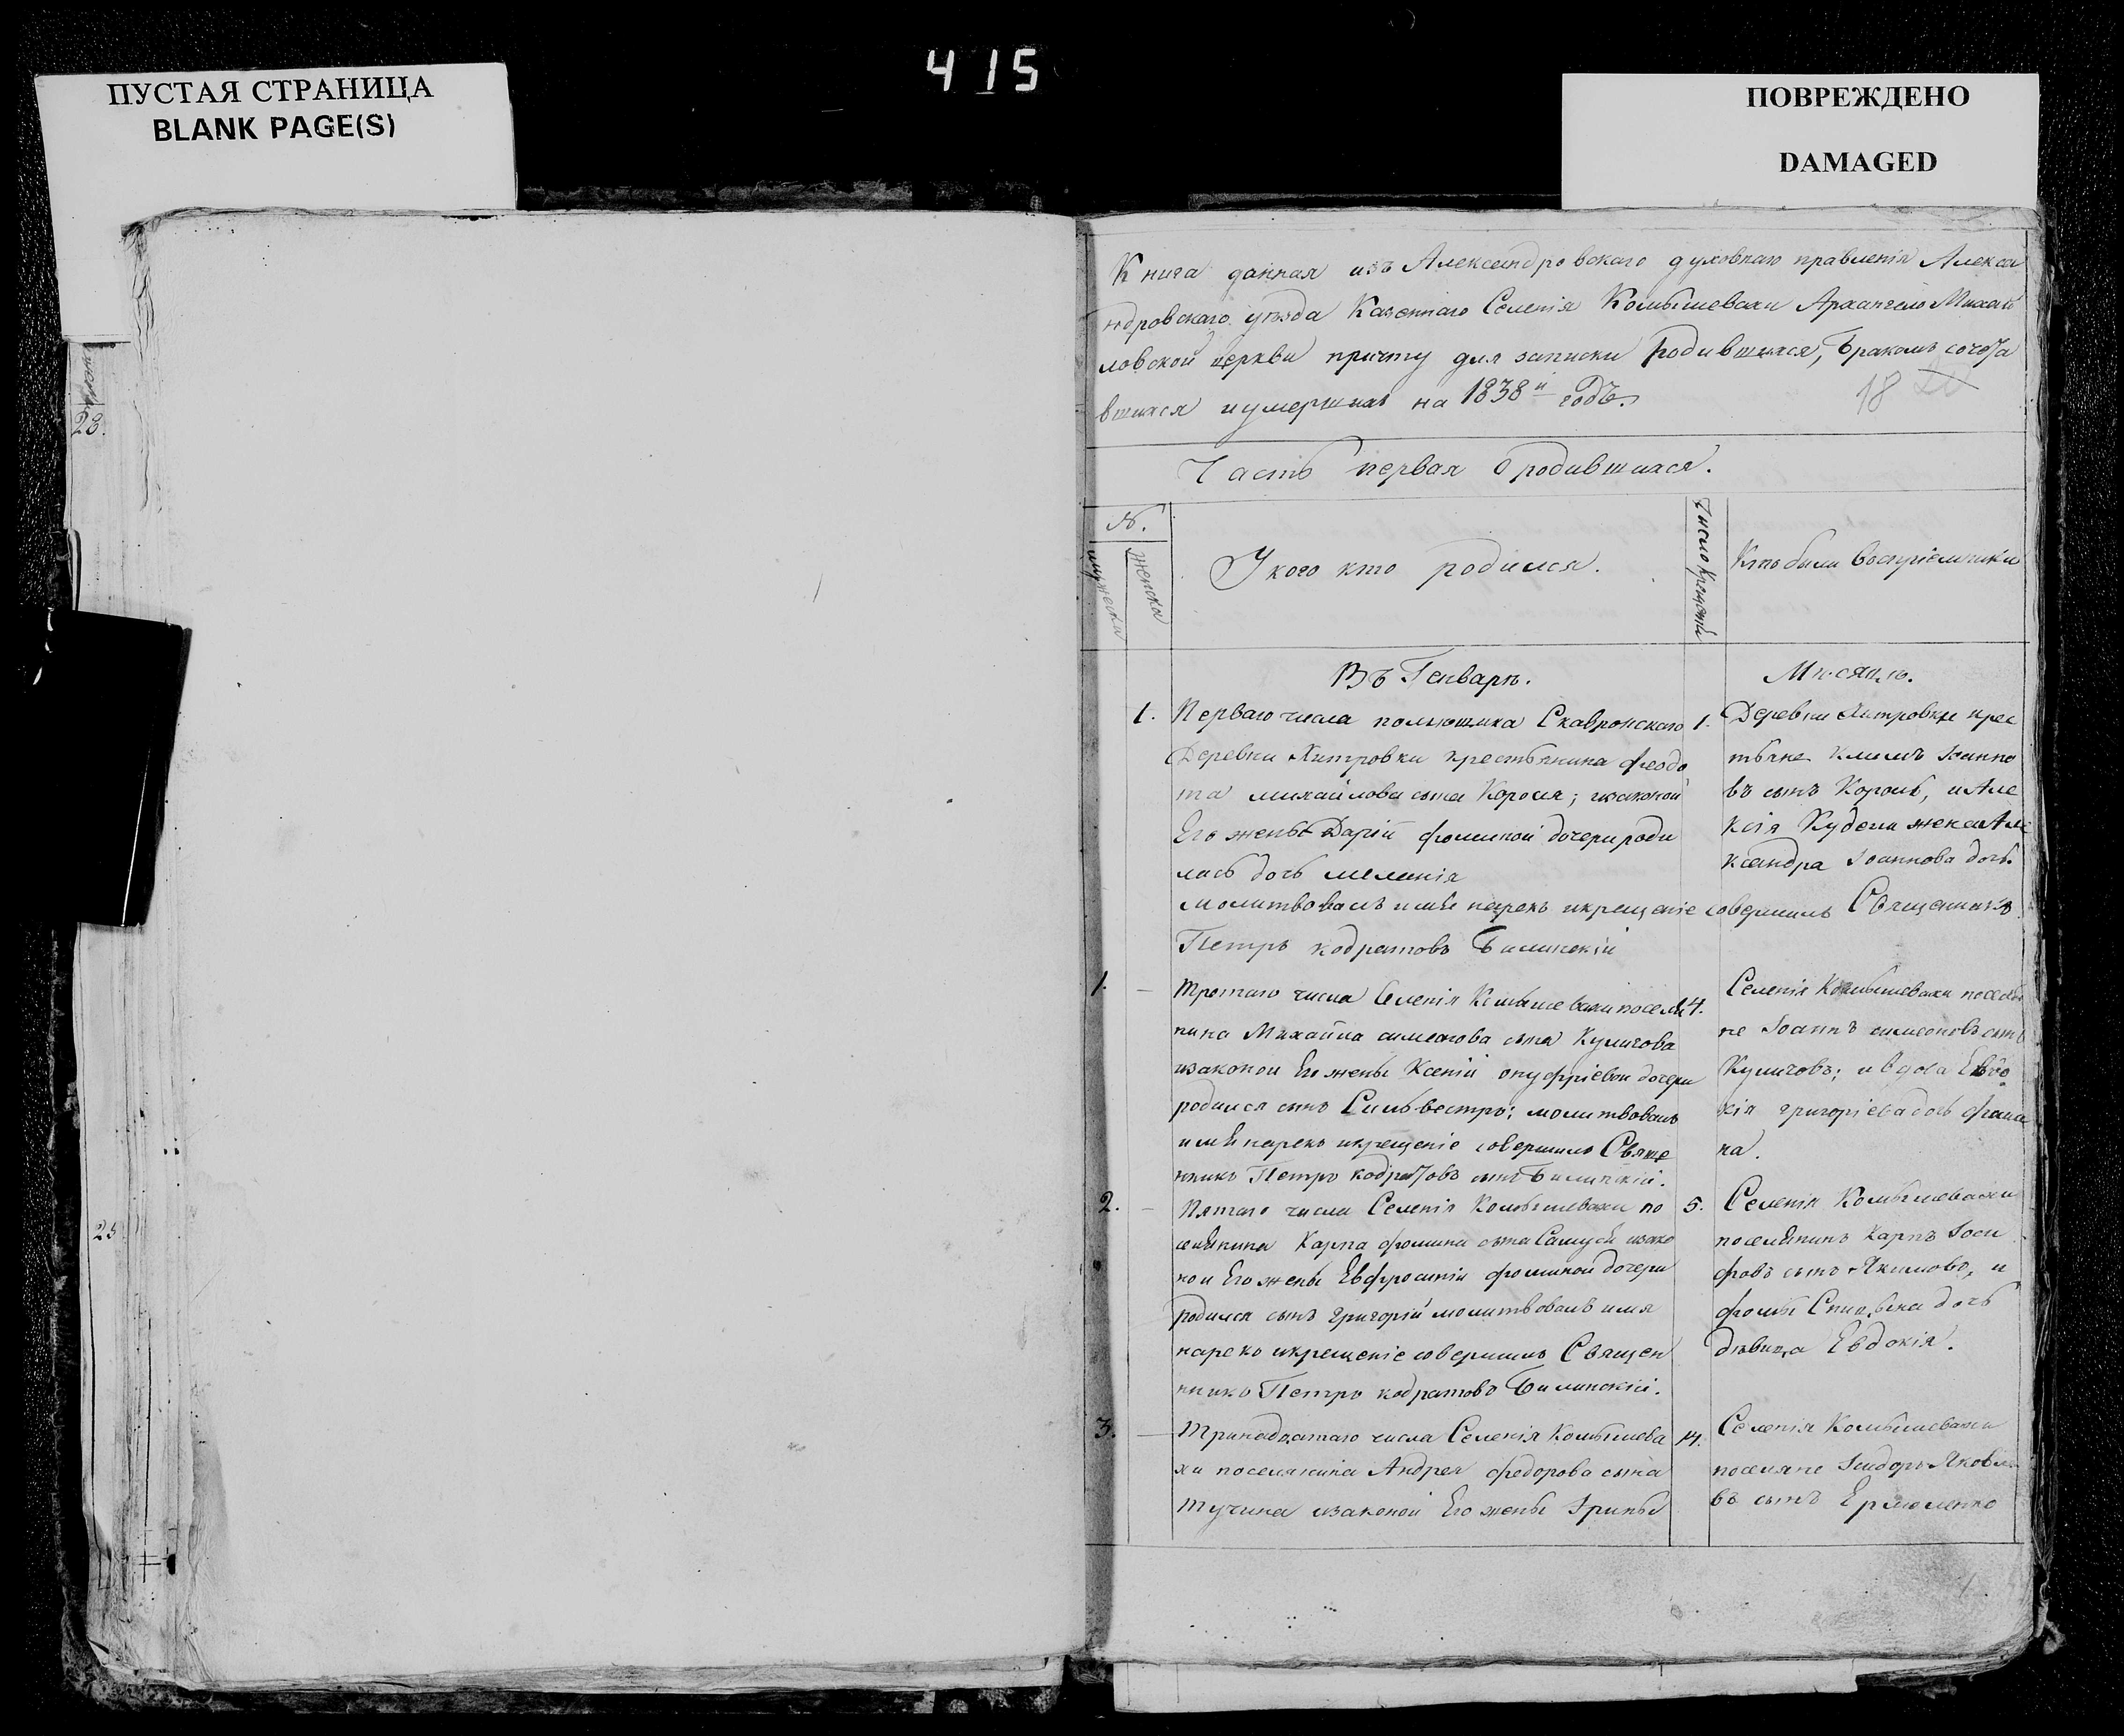 415
ПУСТАЯ СТРАНИЦА
BLANK PAGE(S)
ПОВРЕЖДЕНО
DAMAGED
23.
25
Книга данная изъ Александровскаго духовнаго правленія Алекса
ндровскаго уѣзда Казеннаго Селенія Комышевахи Архангело Михаи
ловской церкви причту для записки родившихся, бракомъ сочета
вшихся и умершихъ на 1838й годъ.
18
Часть первая о родившихся.
№.
мужеска
женска
У кого кто родился.
Число крещенія
Кто были воспріемники
Въ Генварѣ.
Мѣсяцѣ.
1. Перваго числа помѣщика Скавронскаго 1.
Деревни Хитровки крестьянина Феодо
та михайлова сына Короля; изаконой
Его жены Дарій фоминой дочери роди
лась дочь меланія
молитвовалъ имя нарекъ икрещеніе совершилъ Священникъ
Петръ кодратовъ Билинскій
Деревни Хитровки крес
тьяне Климъ Іоанно
въ сынъ Король, и Але
ксія Кудели жена Але
ксандра Іоаннова дочь.
1. — Третаго числа Селенія Комышевахи поселя 4.
нина Михайла симеонова сына Куличова
изаконои Его жены Ксеніи онуфріевои дочери
родился сынъ Сильвестръ; молитвовалъ
имя нарекъ икрещеніе совершилъ Свяще
нникъ Петръ кодратовъ сынъ Билинскій.
Селенія Комышевахи поселя
не Іоаннъ симеоновъ сынъ
Куличовъ; и вдова Евдо
кія григоріева дочь
на.
2. — Пятаго числа Селенія Комышевахи по 5.
селянина Карпа фомина сына Самусѣ изако
нои Его жены Евфросиніи фоминой дочери
родился сынъ григорій молитвовалъ имя
нарекъ икрещеніе совершилъ Священ
никъ Петръ кодратовъ Билинскій.
Селенія Комышевахи
поселянинъ Карпъ Іоси
фовъ сынъ Якимовъ, и
фомы дочь
дѣвица Евдокія.
3. — Тринадцатаго числа Селенія Комышева 14.
хи поселянина Андрея федорова сына
Тучина изаконой Его жены Ірины
Селенія Комышевахи
поселяне Ісидоръ Яковле
въ сынъ Ермоленко
1.